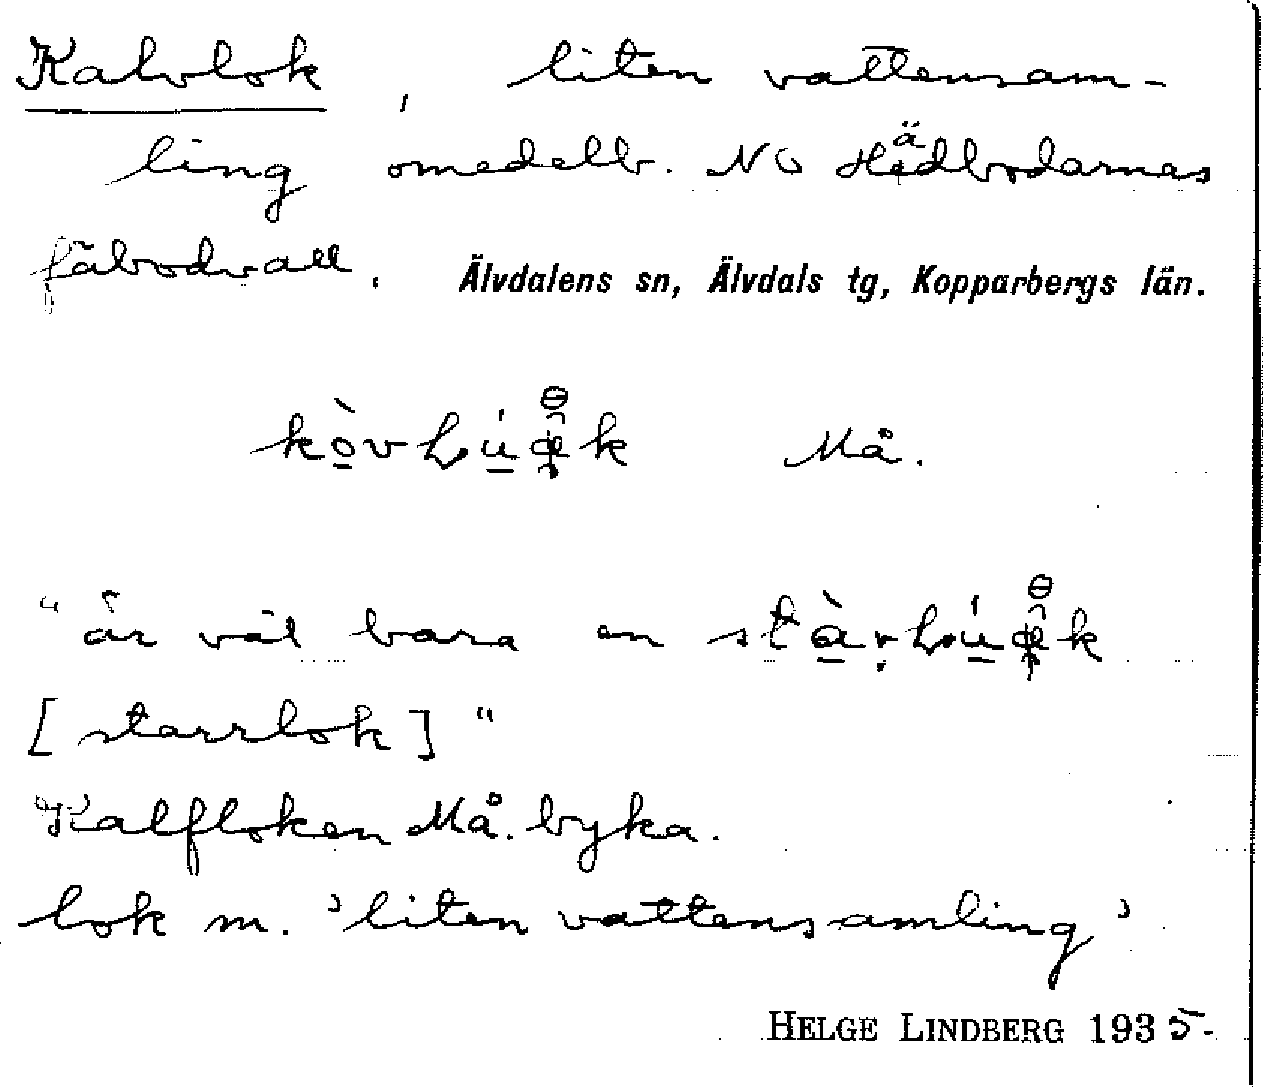 Kalvlok, liten vattensam-
ling omedelb. NO Hädbodarnas
fäbodvall. Älvdalens sn, Älvdals tg, Kopparbergs län.
Må.
"är väl bara en
[starrlok]"
Kalfloken Må. byka.
lok m. 'liten vattensamling'
HELGE LINDBERG 1935-